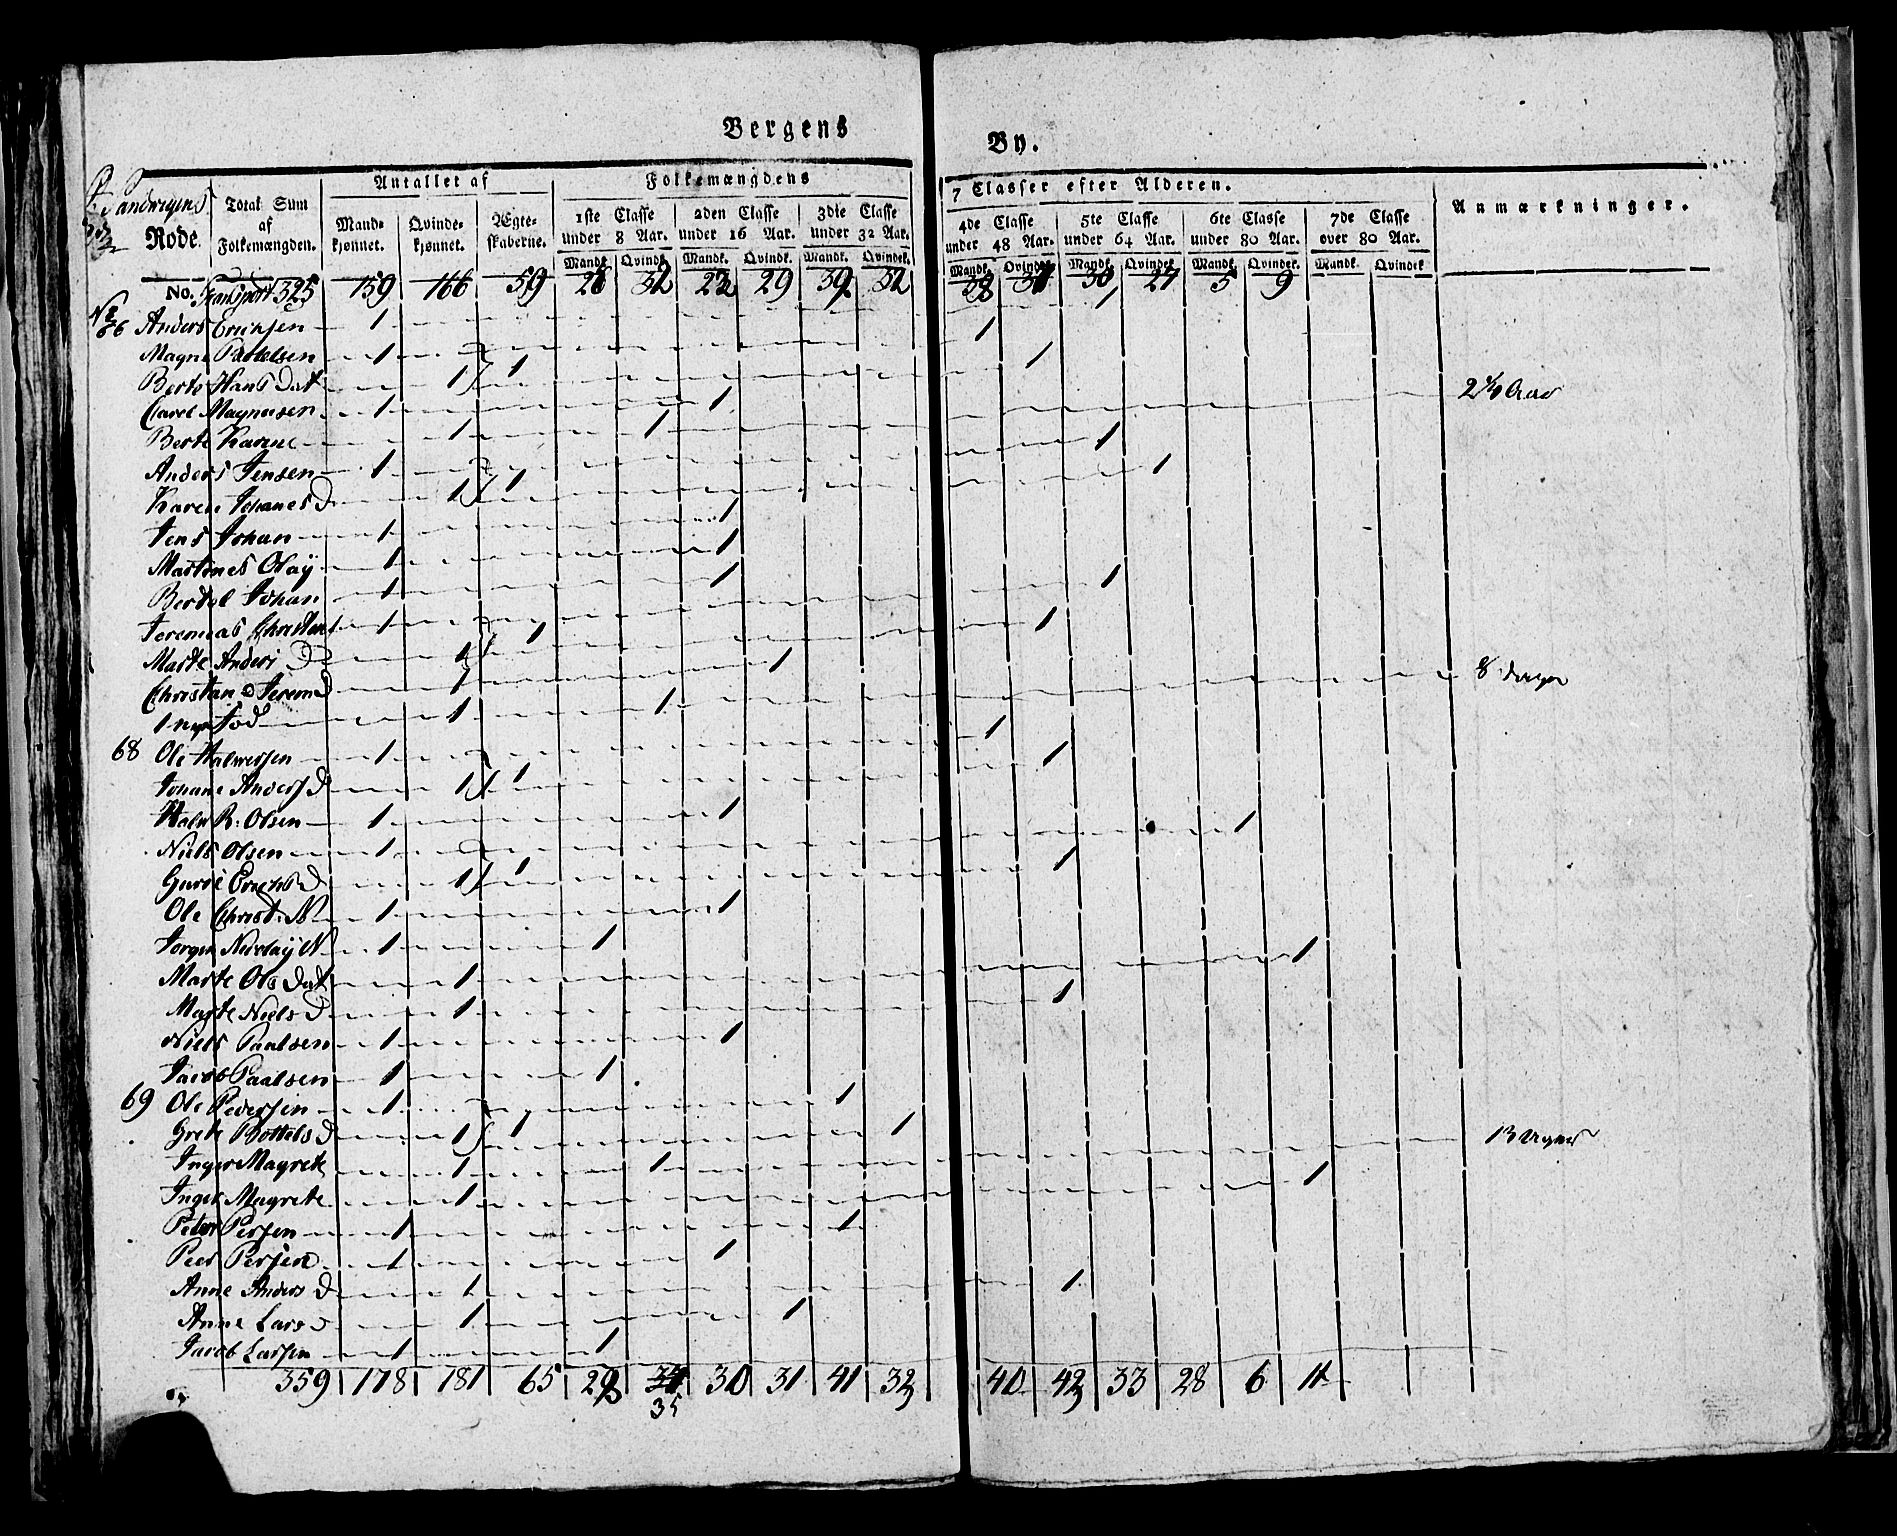 Bergens By.
Sandwigens
Rode.
Total Sum af Folkemængden.
Antallet af
Mandkjønnet. Qvindekjønnet. Ægteskaberne.
Folkemængdens 7 Classer efter Alderen.
1ste Classe under 8 Aar. 2den Classe under 16 Aar. 3die Classe under 32 Aar. 4de Classe under 48 Aar. 5te Classe under 64 Aar. 6te Classe under 80 Aar. 7de Classe over 80 Aar.
Mandk. Qvindk. Mandk. Qvindk. Mandk. Qvindek. Mandk. Qvindek. Mandk. Qvindek Mandk. Qvindek. Mandk. Qvindek
Anmærkninger.
No. Transport 325 159 166 59 26 32 22 29 39 32 38 30 27 5 9
66 Anders Erichsen 1 1
Magne 1 1
Berte Hans Dat 1 1 1
Carel Magnusen 1 1
Berte Karine 1 1
Anders Jensen 1 1
Karen Johanes D 1 1 1
Jens Johan 1 1
Martines Olay 1 1
Bertel Johan 1 1
Jeremias 1 1
Marte Anders D 1 1 1
1 1
1 1 8
68 Ole Halwersen 1 1
Johane Anders D 1 1 1
Halw R. Olsen 1 1
Niels Olsen 1 1
Gurie D 1 1 1
Ole Christ. N 1 1
Jørgen Nicolay N 1 1
Marte Ols Dat 1 1
Marte Niels D 1 1
Niels Paalsen 1 1
Jacob Paalsen 1 1
69 Ole Pedersen 1 1
Grete Bottels D 1 1 1
Inger Magrete 1 1 13
Inger Magrete 1 1
Peter Persen 1 1
Peer Persen 1 1
Anne Anders D 1 1
Anne Lars D 1 1
Jacob Larsen 1 1
359 178 181 65 29 35 30 31 41 32 40 42 33 28 6 11